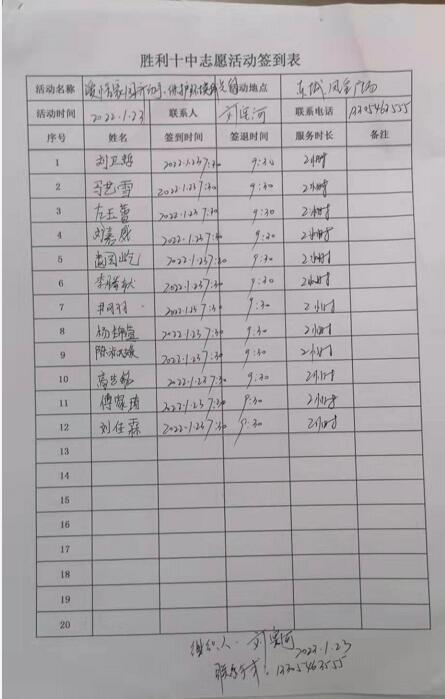 胜利十中志愿活动签到表
活动名称 爱惜家园 保护环境 活动地点 东城凤凰广场
活动时间 2022.1.23 联系人 刘星河 联系电话 13305463555
序号 姓名 签到时间 签退时间 服务时长 备注
1 刘卫 2022.1.23 7:30 9:30 2小时
2 马艺雪 2022.1.23 7:30 9:30 2小时
3 左玉 2022.1.23 7:30 9:30 2小时
4 刘嘉 2022.1.23 7:30 9:30 2小时
5 2022.1.23 7:30 9:30 2小时
6 李 2022.1.23 7:30 9:30 2小时
7 2022.1.23 7:30 9:30 2小时
8 杨 2022.1.23 7:30 9:30 2小时
9 陈 2022.1.23 7:30 9:30 2小时
10 高 2022.1.23 7:30 9:30 2小时
11 傅家琦 2022.1.23 7:30 9:30 2小时
12 刘任霖 2022.1.23 7:30 9:30 2小时
13
14
15
16
17
18
19
20
组织人:刘星河
2022.1.23
联系方式:13305463555